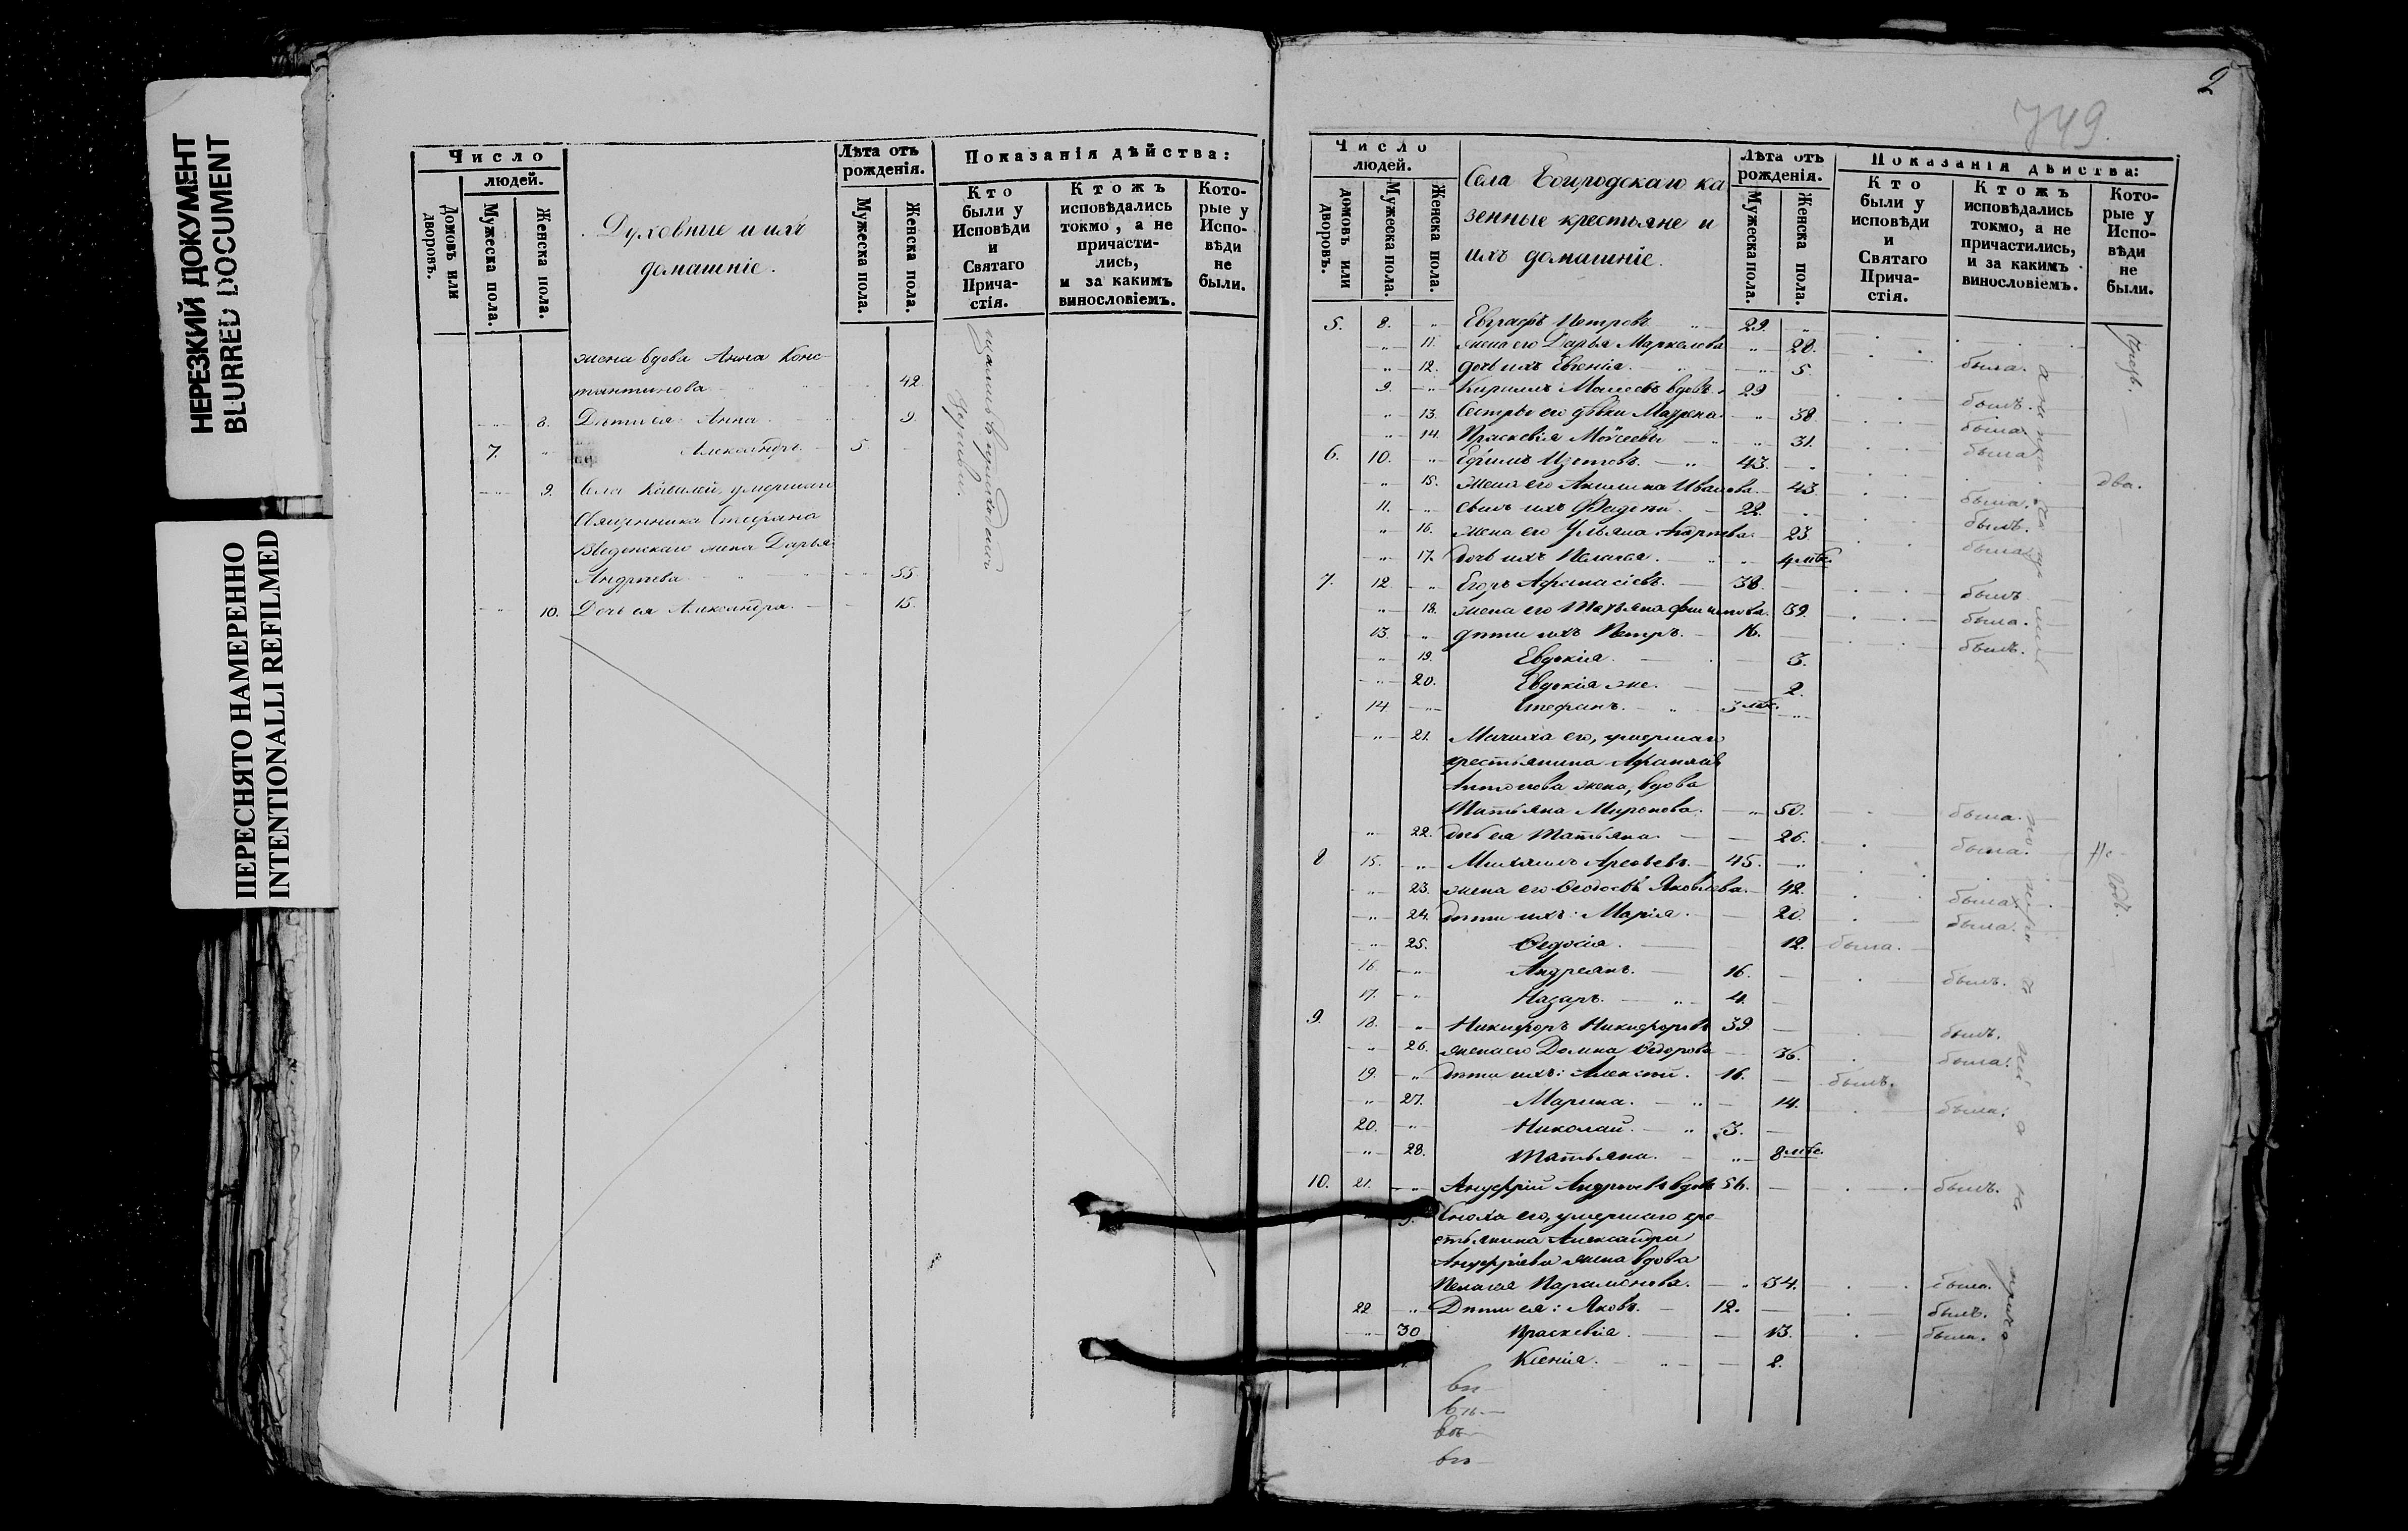 НЕРЕЗКИЙ ДОКУМЕНТ
BLURRED DOCUMENT
ПЕРЕСНЯТО НАМЕРЕННО
INTENTIONALLI REFILMED
Число
людей.
Домовъ или дворовъ.
Мужеска пола.
Женска пола.
Духовные и ихъ
домашніе.
Лѣта отъ рожденія.
Мужеска пола.
Женска пола.
Показанія дѣйства:
Кто были у Исповѣди и Святаго Прича-стія.
Ктожъ исповѣдались токмо, а не причасти-лись, и за какимъ винословіемъ.
Кото-рые у Испо-вѣди не были.
жена вдова Анна Конс-
тантинова 42
8. Дѣти ея: Анна 9.
7. Александръ 5
9. Села умершаго
Священника Стефана
Введенскаго жена Дарья
Андреева 55
10. Дочь ея Александра. 15.
2
749.
Число
людей.
домовъ или дворовъ.
Мужеска пола.
Женска пола.
Села Богородскаго ка
зенные крестьяне и
ихъ домашніе.
Лѣта отъ рожденія.
Мужеска пола.
Женска пола.
Показанія дѣйства:
Кто были у исповѣди и Святаго Прича-стія.
Ктожъ исповѣдались токмо, а не причастились, и за какимъ винословіемъ.
Кото-рые у Испо-вѣди не были.
5. 8. Евграфъ Петровъ 29.
11. жена его Дарья Маркелова 28.
12. дочь ихъ Евгенія. 5. была.
9. Кирилъ Моисеевъ вдовъ. 29 былъ.
13. Сестры его дѣвки Матрена 38 была.
14. Праскевія Моисеевы 31. была
6. 10. Ефимъ Изотовъ. 43.
15. жена его Акилина Иванова. 43. два. была.
11. сынъ ихъ Фадей. 22. былъ.
16. жена его Ульяна Карпова. 23. была
17. дочь ихъ Пелагея. 4 мѣс.
7. 12. Егоръ Афанасіевъ. 38. былъ
18. жена его Татьяна Филипова. 39. была.
13. дѣти ихъ Петръ. 16. былъ.
19. Евдокія. 3.
20. Евдокія же. 2.
14 Стефанъ. 3 мѣс.
21. Мачиха его, умершаго
крестьянина Афанасія
Антонова жена, вдова
Татьяна Миронова. 50. была.
22. дочь ея Татьяна. 26. была.
8 15. Михаилъ Арефьевъ. 45.
23. жена его Феодосья Яковлева. 42. была.
24. дѣти ихъ: Марія. 20. была.
25. Федосія. 12. была.
16. Андреянъ. 16. былъ.
17. Назаръ. 4.
9. 18. Никифоръ Никифоровъ 39 былъ.
26. жена его Домна Федорова 36. была.
19. дѣти ихъ: Алексѣй. 16. былъ.
27. Марина. 14. была.
20. Николай. 3.
28. Татьяна. 8 мѣс.
10. 21. Андрей Андреевъ вдовъ 56. былъ.
Сноха его, умершаго кре-
стьянина Александра
Андреева жена вдова
Пелагея Парамонова. 34. была.
22 Дѣти ея: Яковъ. 12. былъ.
30 Праскевія. 13. была.
Ксенія. 2.